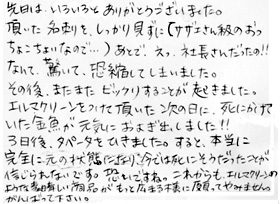 先日は、いろいろとありがとうございました。
頂いた名刺を、しっかり見ずに(サザエさん級のおっ
ちょこちょいなので…)あとで、えっ、社長さんだったの!!
なんて、驚いて、恐縮してしまいました。
その後、またまたビックリすることが起きました。
エルマクリーンをつけて頂いた次の日に、死にかけて
いた金魚が元気におよぎ出しました!!
3日後、スペータもとてきました。すると、本当に
完全に元の状態になり、今では死にそうだったことが
信じられないです。恐いですね。これからも、エルマクリーンの
ような素晴しい商品がもっと広まる様に願ってやみません。
がんばって下さい。